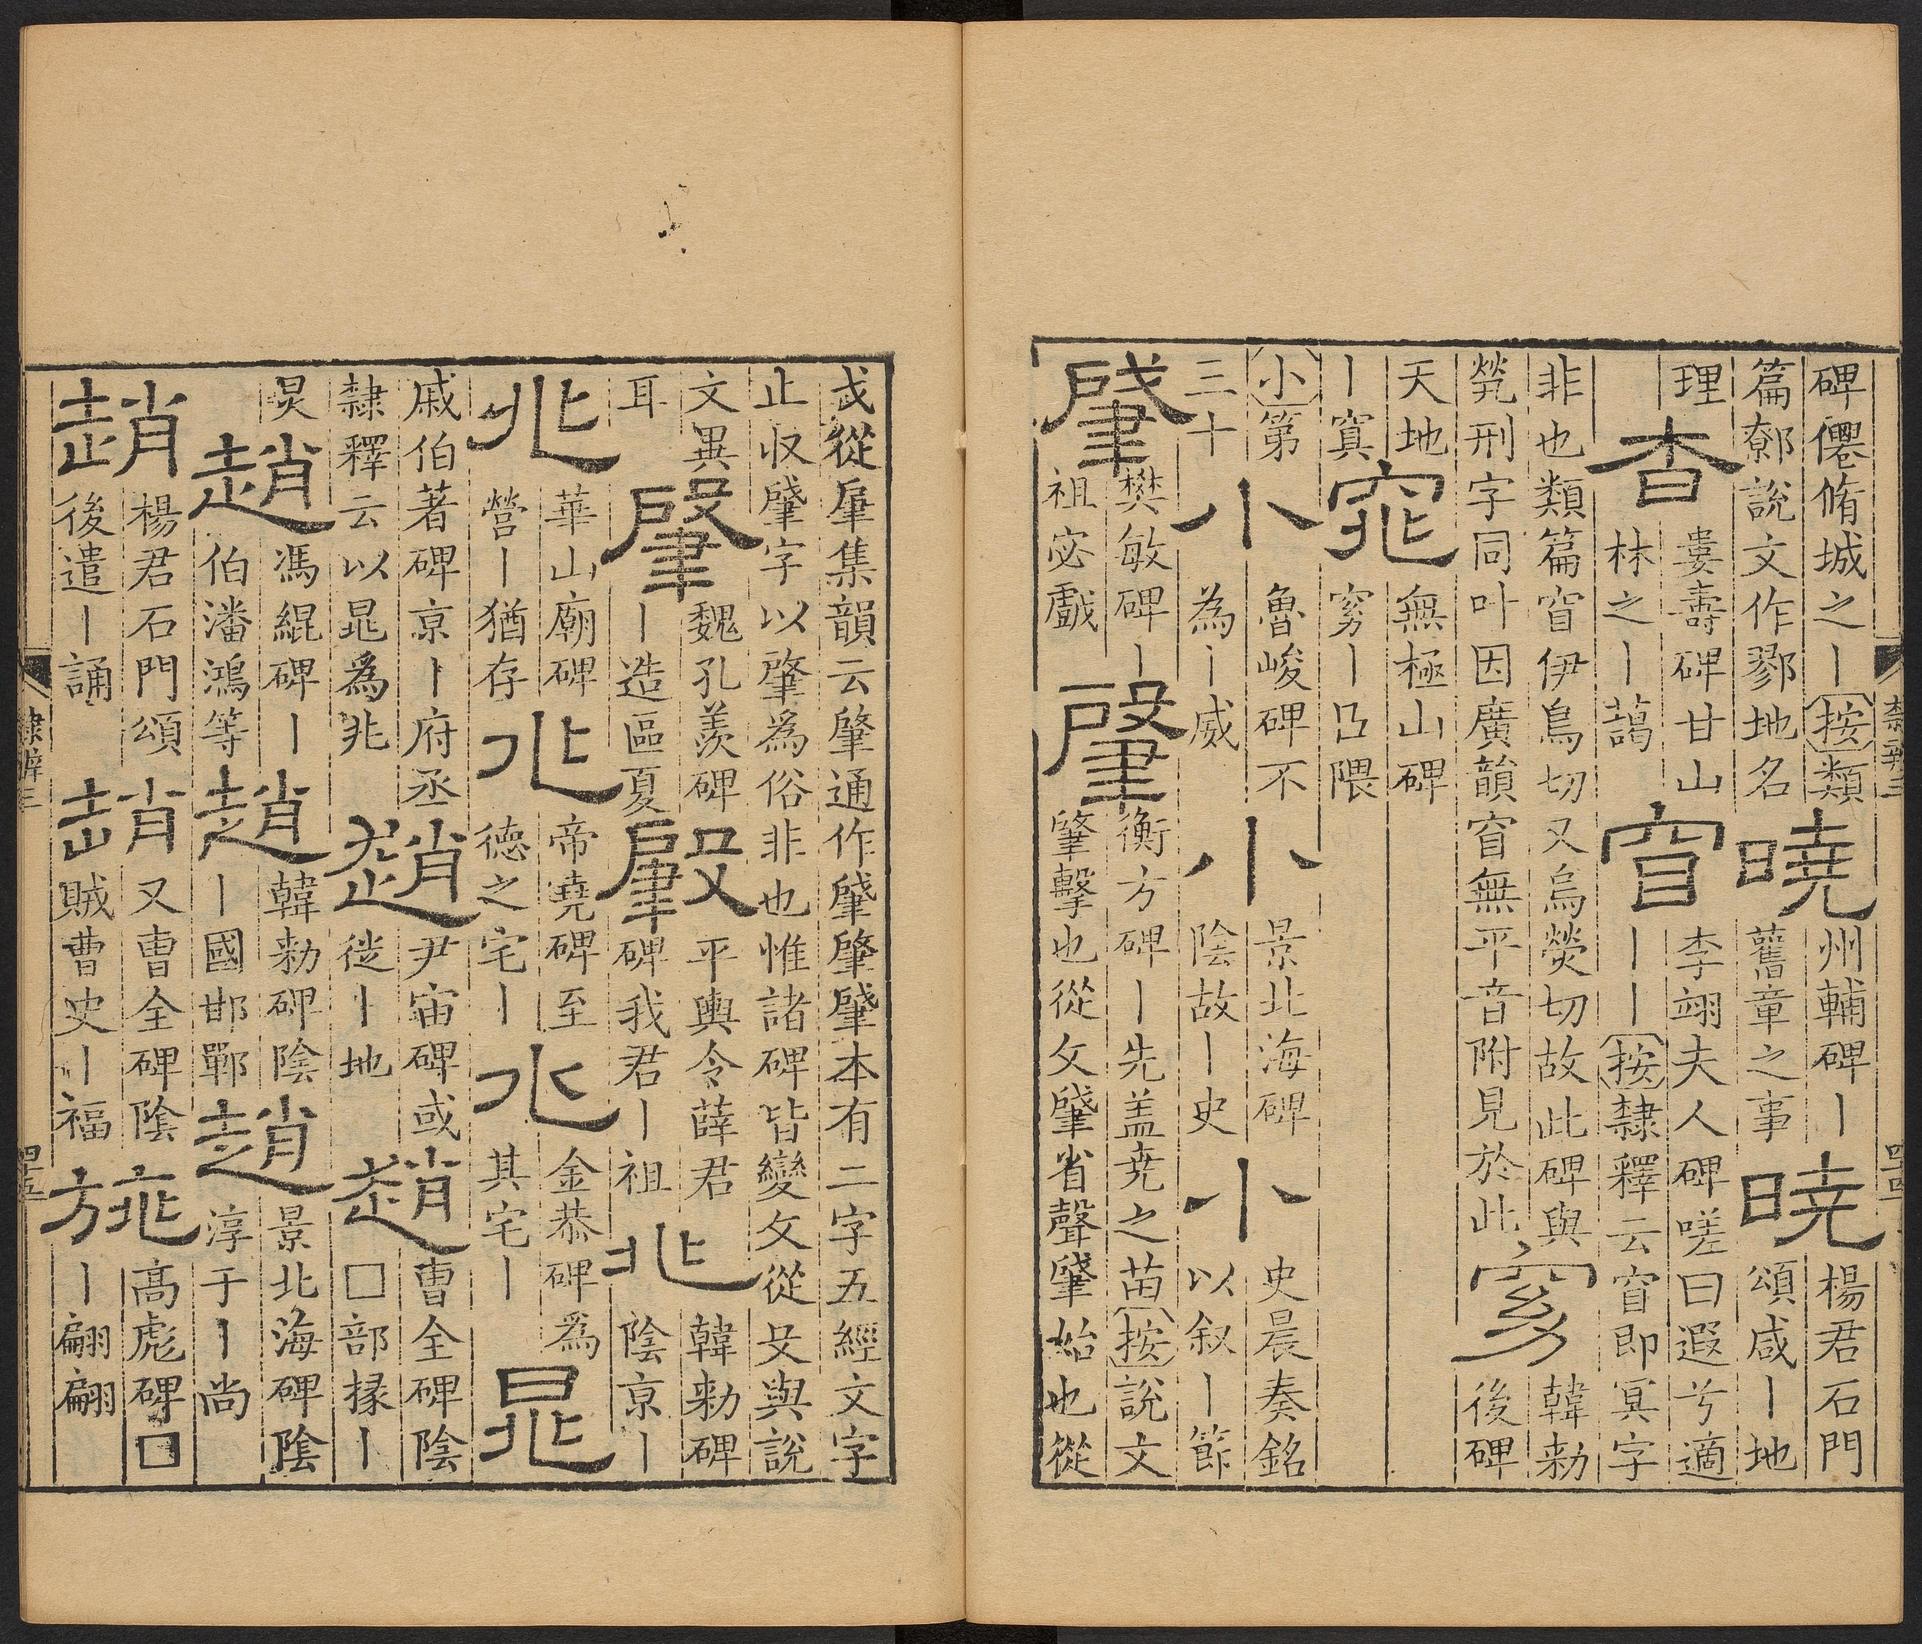 碑僊脩城之丨按類
篇鄡說文作鄝地名
曉
州輔碑丨
舊章之事
曉
楊君石門
頌咸丨地
理
杳
婁壽碑甘山
林之丨藹
窅
李翊夫人碑嗟曰遐兮適
丨丨按隸釋云窅即冥字
非也類篇窅伊鳥切又烏熒切故此碑與
煢刑字同叶因廣韻窅無平音附見於此
韓勑
後碑
天地
丨寘
窕
無極山碑
窈丨㔾隈
小第
三十
小
魯峻碑不
為丨威
小
景北海碑
陰故丨史
小
史晨奏銘
以叙丨節
肈
樊敏碑丨
祖宓戲
肇
衡方碑丨先盖堯之苗按說文
肇擊也從攵肈省聲肈始也從
戉從肁集韻云肇通作肈肇肈本有二字五經文字
止収肈字以肇為俗非也惟諸碑皆變攵從殳與說
文異
耳
肇
魏孔羨碑
丨造區夏
肇
平輿令薛君
碑我君丨祖
兆
韓勑碑
陰京丨
兆
華山廟碑
營丨猶存
兆
帝堯碑至
德之宅丨
兆
金恭碑為
其宅丨
晁
戚伯著碑京丨府丞
隸釋云以晁為兆
趙
尹宙碑或
徙丨地
趙
曹全碑陰
□部掾丨
炅
趙
馮緄碑丨
伯潘鴻等
趙
韓勑碑陰
丨國邯鄲
趙
景北海碑陰
淳于丨尚
趙
楊君石門頌
後遣丨誦
趙
又曹全碑陰
賊曹史丨福
旐
高彪碑□
丨翩翩
隸辨三
四十五